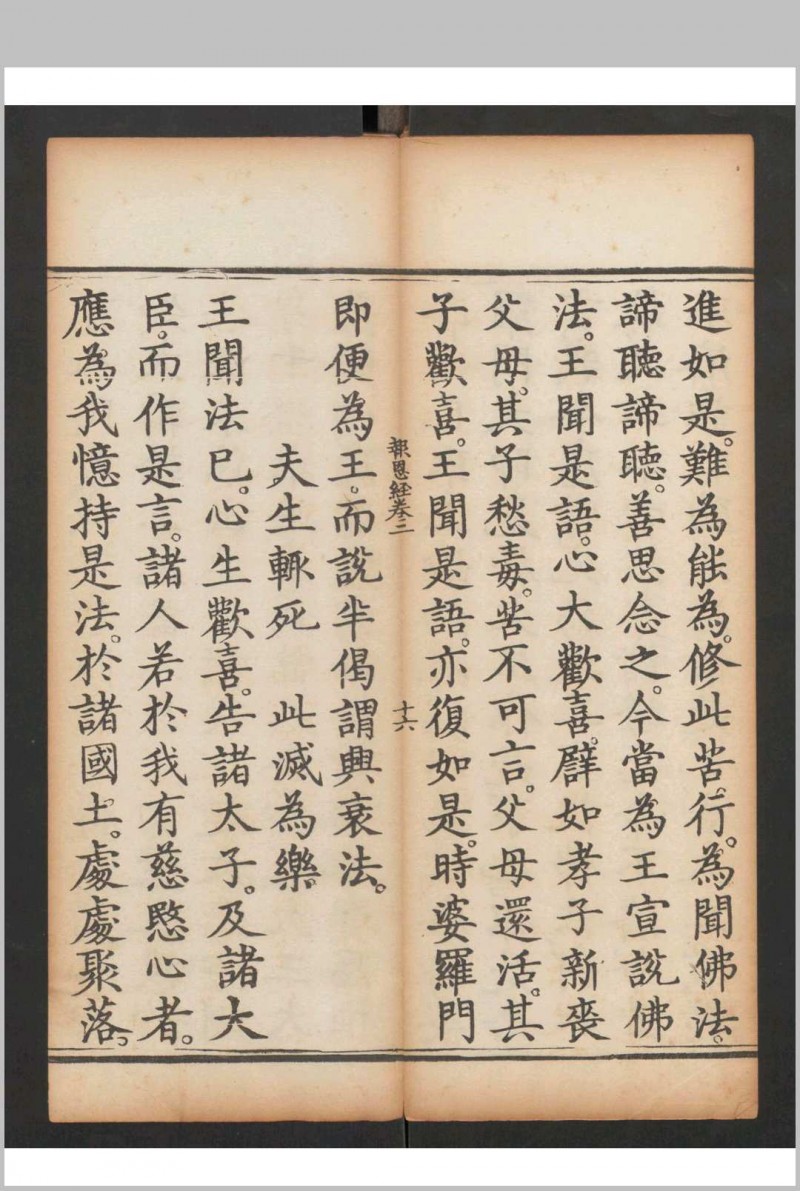 進如是。難為能為。修此苦行。為聞佛法。
諦聽諦聽。善思念之。今當為王宣說佛
法。王聞是語。心大歡喜。譬如孝子新喪
父母。其子愁毒。苦不可言。父母還活。其
子歡喜。王聞是語。亦復如是。時婆羅門
報恩經卷二
十六
即便為王。而說半偈謂興衰法。
夫生輒死 此滅為樂
王聞法已。心生歡喜。告諸太子。及諸大
臣。而作是言。諸人若於我有慈愍心者。
應為我憶持是法。於諸國土。處處聚落。